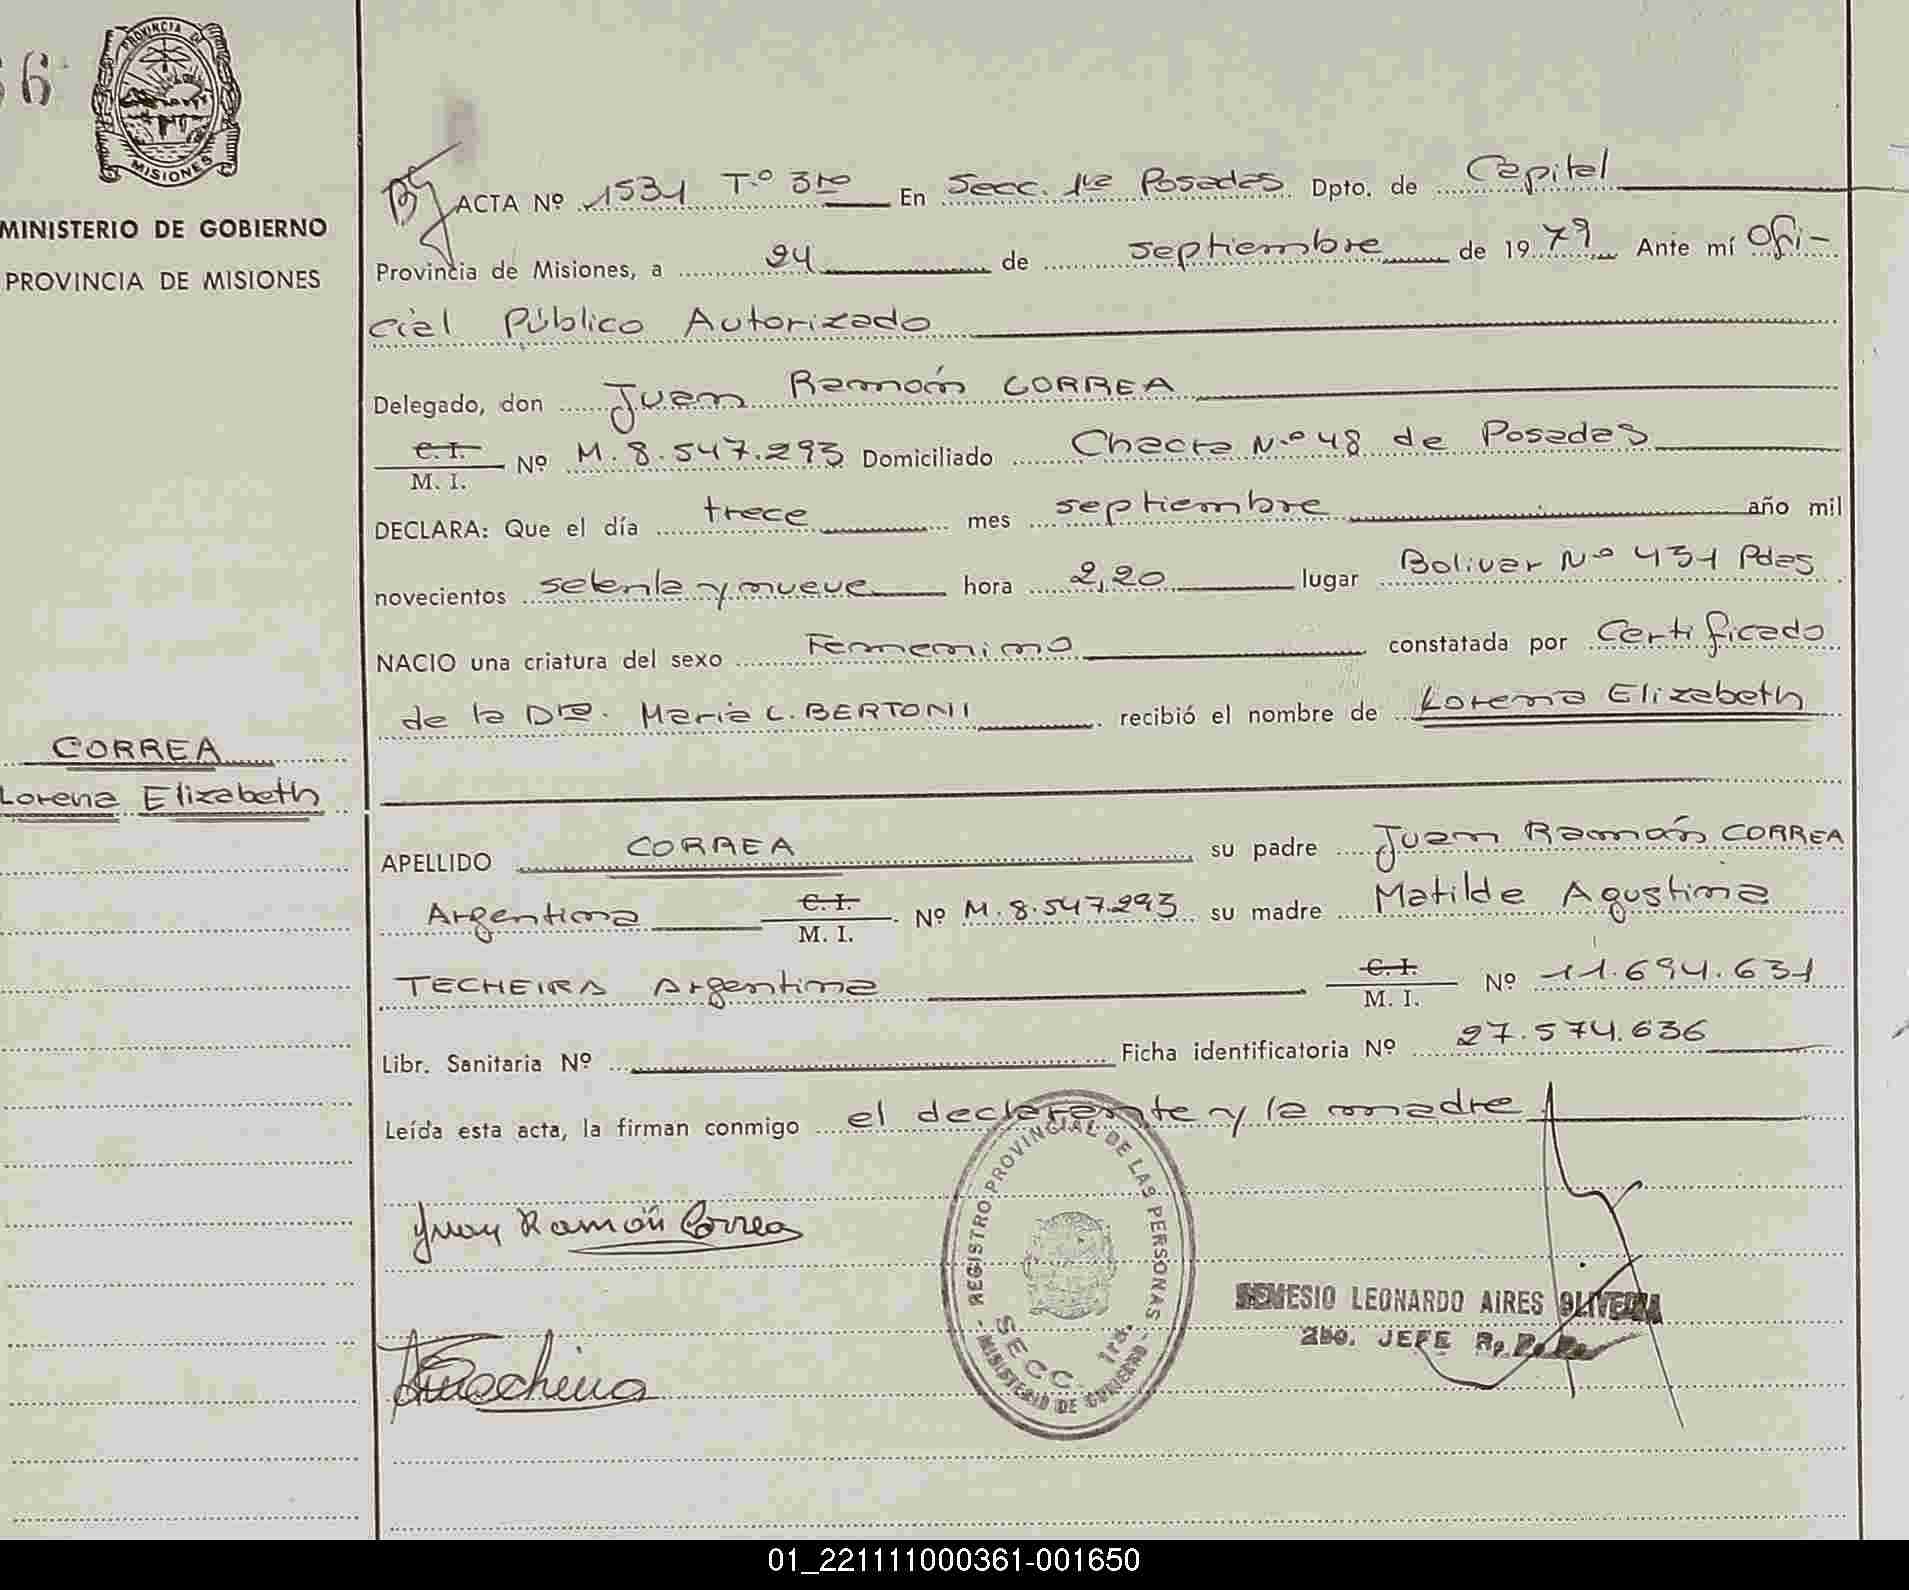 66
PROVINCIA DE
MISIONES
MINISTERIO DE GOBIERNO
PROVINCIA DE MISIONES
CORREA
Lorena Elizabeth
ACTA Nº 1531 T.º 3ro En Secc. 1ra Posadas Dpto. de Capital
Provincia de Misiones, a 24 de septiembre de 1979 Ante mí Ofi-
cial Público Autorizado
Delegado, don Juan Ramón CORREA
C.I.
M. I. Nº M.8.547.293 Domiciliado Chacra N.º 48 de Posadas
DECLARA: Que el día trece mes septiembre año mil
novecientos setenta y nueve hora 2,20 lugar Bolivar Nº 431 Pdas
NACIO una criatura del sexo Femenino constatada por Certificado
de la Dra. Maria L. BERTONI recibió el nombre de Lorena Elizabeth
APELLIDO CORREA su padre Juan Ramón CORREA
Argentina C.I. M. I. Nº M.8.547.293 su madre Matilde Agustina
TECHEIRA Argentina C.I. M. I. Nº 11.694.631
Libr. Sanitaria Nº Ficha identificatoria Nº 27.574.636
Leída esta acta, la firman conmigo el declarante y la madre
Juan Ramón Correa
REGISTRO PROVINCIAL DE LAS PERSONAS
SECC. 1ra.
MINISTERIO DE GOBIERNO
NEMESIO LEONARDO AIRES OLIVEIRA
2do. JEFE R. P. P.
01_221111000361-001650